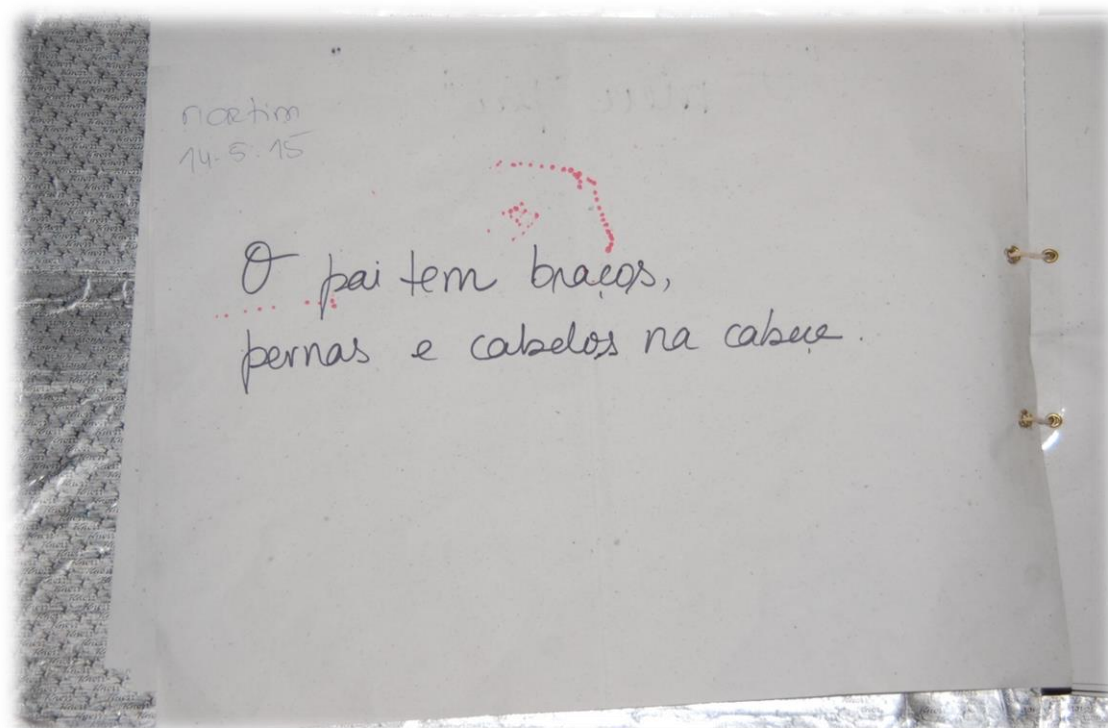 martim
14.5.15
O pai tem braços,
pernas e cabelos na cabeça.